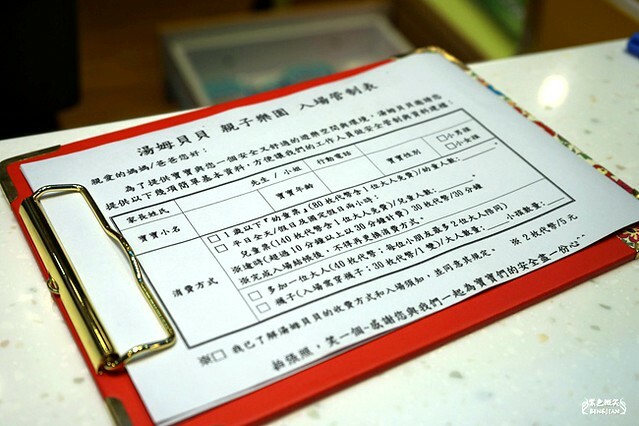 湯姆貝貝 親子樂園 入場管制表
親愛的媽媽/爸爸您好：
為了提供寶寶與您一個安全又舒適的遊樂空間與環境，湯姆貝貝邀請您
提供以下幾項簡單基本資料，方便讓我們的工作人員做安全管制與資料建檔：
家長姓氏 先生 / 小姐 行動電話
寶寶小名 寶寶年齡 寶寶性別 □小男孩 □小女孩
消費方式
□1歲以下『幼童票』(80枚代幣含1位大人免費)/幼童人數：
□平日全天/假日及國定假日兩小時：
兒童票(140枚代幣含1位大人免費)/兒童人數：
※逾時(超過10分鐘以上以30分鐘計費) 30枚代幣/30分鐘
※完成入場結帳後，不得再更換消費方式。
□多加一位大人(40枚代幣，每位小朋友最多2位大人陪同)
□襪子(入場需穿襪子；30枚代幣/1雙)/大人數量： 小孩數量：
※2枚代幣/5元
※□我已了解湯姆貝貝的收費方式和入場須知，並同意其規定。
拍張照，笑一個~感謝您與我們一起為寶寶們的安全盡一份心
黑色微笑
BENGJIAN